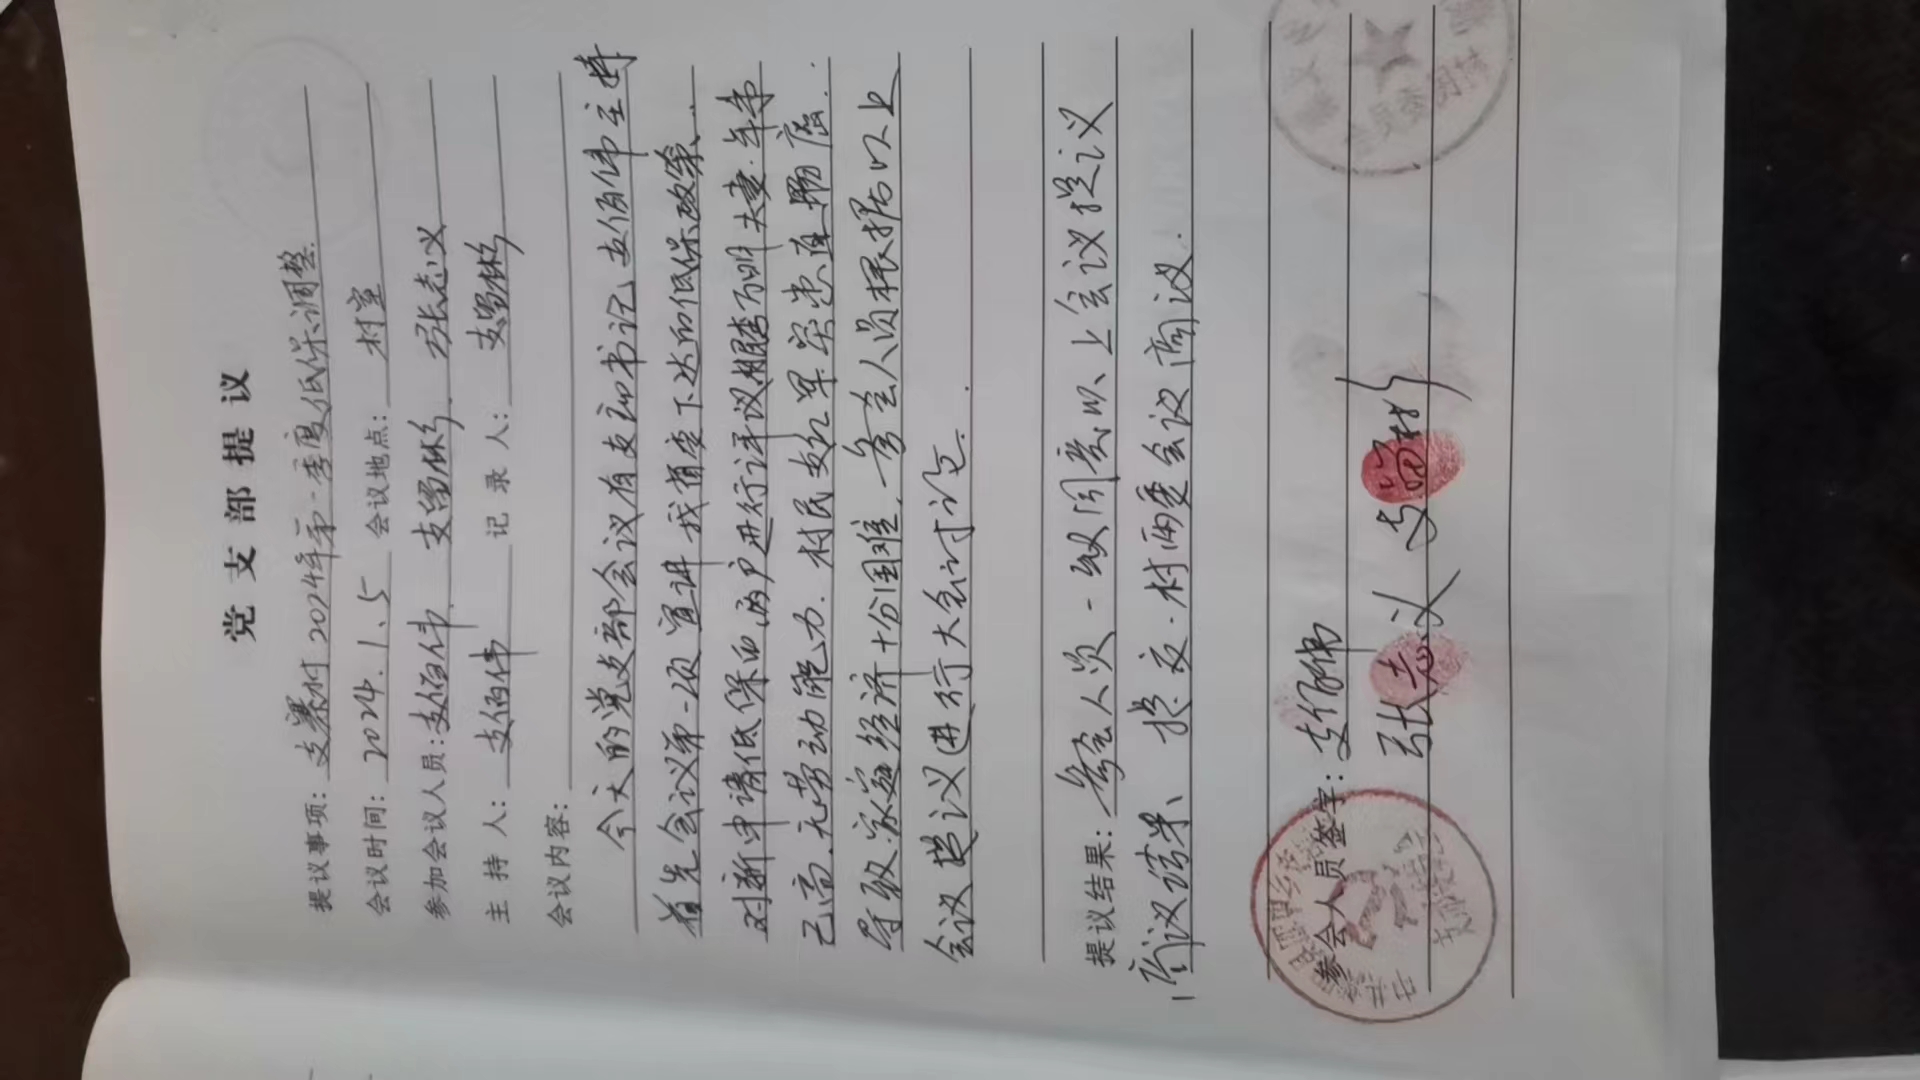 党支部提议
提议事项: 支寨村2024年第一季度低保调整
会议时间: 2024.1.5 会议地点: 村室
参加会议人员: 支佰伟. 支留彬. 张志义
主持人: 支佰伟 记录人: 支留彬
会议内容:
今天的党支部会议有支部书记支佰伟主持
首先会议第一项宣讲我省委下达的低保政策.
对新申请低保的两户进行评议 万明夫妻.年岁
已高.无劳动能力.村民支红军突患直肠癌.
导致家庭经济十分困难.参会人员根据以上
会议提议进行大会讨论.
提议结果: 参会人员一致同意以上会议提议
商议结果 提交.村两委会议商议.
参会人员签字: 支佰伟
张志义 支留彬